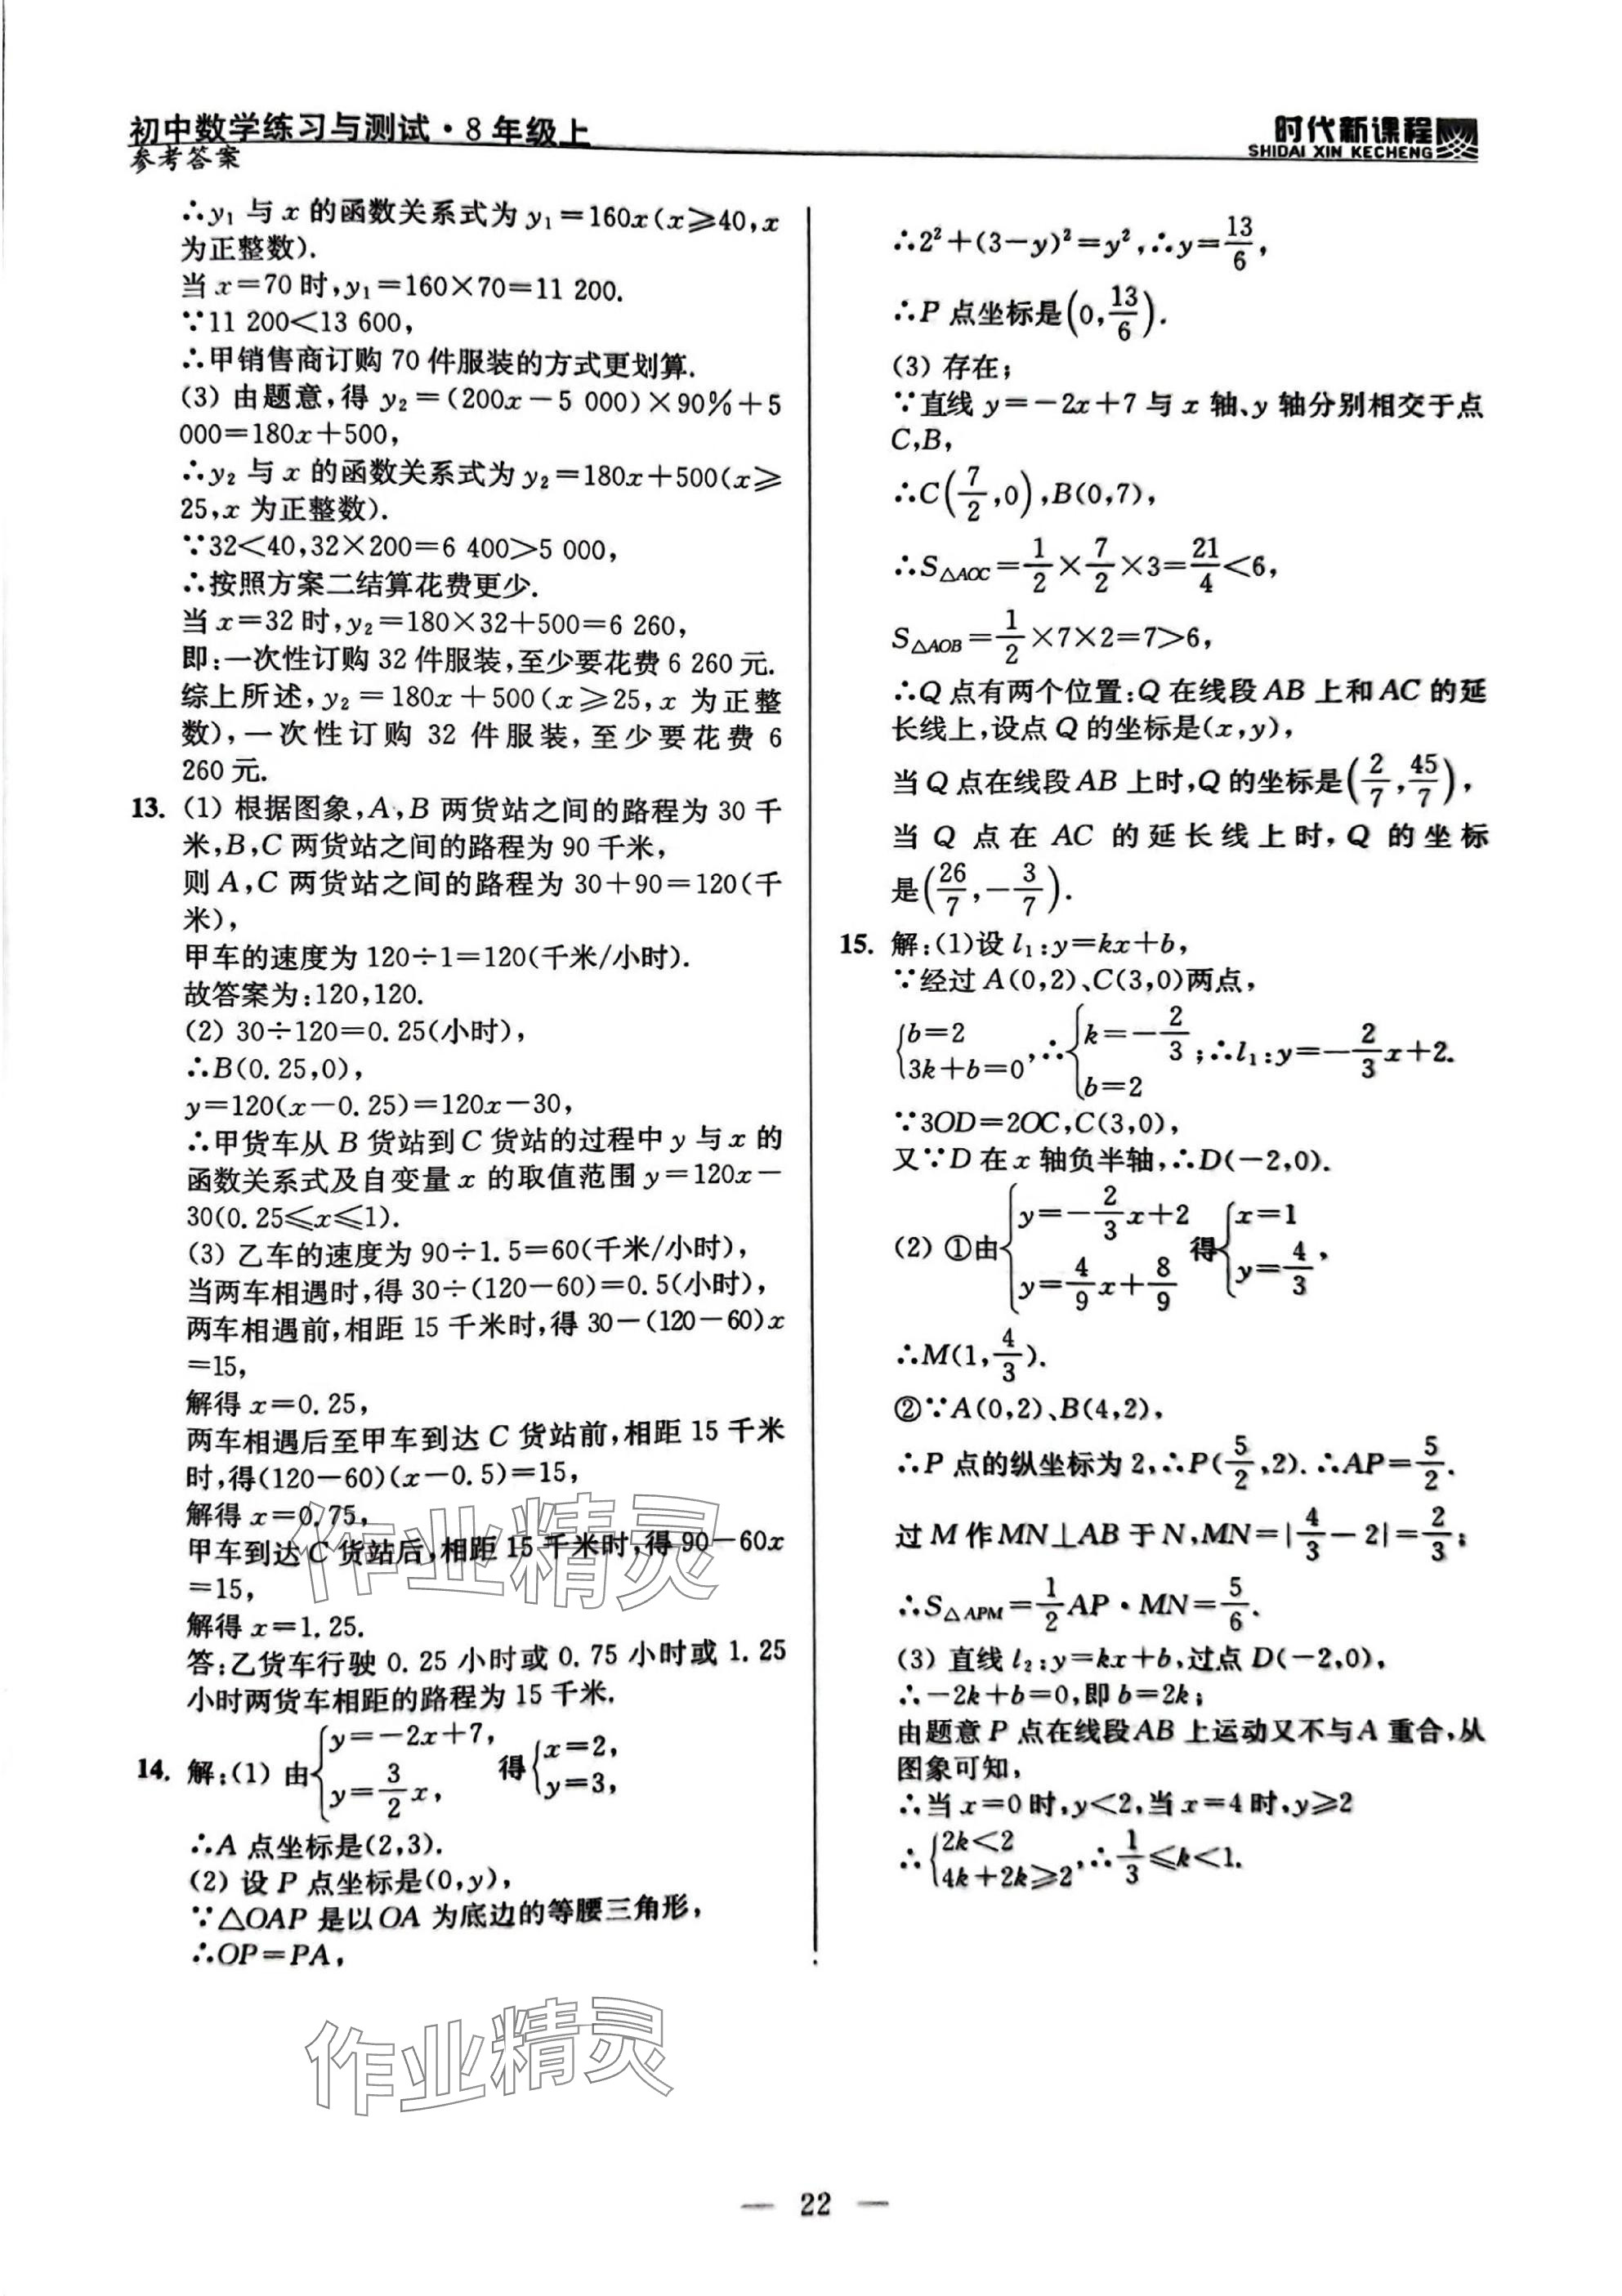 初中数学练习与测试·8年级上
参考答案
时代新课程
SHIDAI XIN KECHENG
∴y₁ 与 x 的函数关系式为 y₁=160x(x⩾40,x
为正整数).
当 x=70 时,y₁=160×70=11 200.
∵11 200<13 600,
∴甲销售商订购 70 件服装的方式更划算.
(3) 由题意,得 y₂=(200x-5 000)×90%+5
000=180x+500,
∴y₂ 与 x 的函数关系式为 y₂=180x+500(x⩾
25,x 为正整数).
∵32<40,32×200=6 400>5 000,
∴按照方案二结算花费更少.
当 x=32 时,y₂=180×32+500=6 260,
即:一次性订购 32 件服装,至少要花费 6 260 元.
综上所述,y₂=180x+500(x⩾25,x 为正整
数),一次性订购 32 件服装,至少要花费 6
260 元.
13. (1) 根据图象,A,B 两货站之间的路程为 30 千
米,B,C 两货站之间的路程为 90 千米,
则 A,C 两货站之间的路程为 30+90=120(千
米),
甲车的速度为 120÷1=120(千米/小时).
故答案为:120,120.
(2) 30÷120=0.25(小时),
∴B(0.25,0),
y=120(x-0.25)=120x-30,
∴甲货车从 B 货站到 C 货站的过程中 y 与 x 的
函数关系式及自变量 x 的取值范围 y=120x-
30(0.25⩽x⩽1).
(3) 乙车的速度为 90÷1.5=60(千米/小时),
当两车相遇时,得 30÷(120-60)=0.5(小时),
两车相遇前,相距 15 千米时,得 30-(120-60)x
=15,
解得 x=0.25,
两车相遇后至甲车到达 C 货站前,相距 15 千米
时,得(120-60)(x-0.5)=15,
解得 x=0.75,
甲车到达 C 货站后,相距 15 千米时,得 90-60x
=15,
解得 x=1.25.
答:乙货车行驶 0.25 小时或 0.75 小时或 1.25
小时两货车相距的路程为 15 千米.
14. 解:(1) 由{y=-2x+7, y=3/2 x, 得{x=2, y=3,
∴A 点坐标是(2,3).
(2) 设 P 点坐标是(0,y),
∵△OAP 是以 OA 为底边的等腰三角形,
∴OP=PA,
∴2²+(3-y)²=y²,∴y=13/6,
∴P 点坐标是(0,13/6).
(3) 存在;
∵直线 y=-2x+7 与 x 轴、y 轴分别相交于点
C,B,
∴C(7/2,0),B(0,7),
∴S△AOC=1/2×7/2×3=21/4<6,
S△AOB=1/2×7×2=7>6,
∴Q 点有两个位置:Q 在线段 AB 上和 AC 的延
长线上,设点 Q 的坐标是(x,y),
当 Q 点在线段 AB 上时,Q 的坐标是(2/7,45/7),
当 Q 点在 AC 的延长线上时,Q 的坐标
是(26/7,-3/7).
15. 解:(1)设 l₁:y=kx+b,
∵经过 A(0,2)、C(3,0)两点,
{b=2 3k+b=0,∴{k=-2/3 b=2;∴l₁:y=-2/3 x+2.
∵3OD=2OC,C(3,0),
又∵D 在 x 轴负半轴,∴D(-2,0).
(2) ①由{y=-2/3 x+2 y=4/9 x+8/9 得{x=1 y=4/3,
∴M(1,4/3).
②∵A(0,2)、B(4,2),
∴P 点的纵坐标为 2,∴P(5/2,2).∴AP=5/2.
过 M 作 MN⊥AB 于 N,MN=|4/3-2|=2/3;
∴S△APM=1/2 AP·MN=5/6.
(3) 直线 l₂:y=kx+b,过点 D(-2,0),
∴-2k+b=0,即 b=2k;
由题意 P 点在线段 AB 上运动又不与 A 重合,从
图象可知,
∴当 x=0 时,y<2,当 x=4 时,y⩾2
∴{2k<2 4k+2k⩾2,∴1/3⩽k<1.
作业精灵
作业精灵
— 22 —